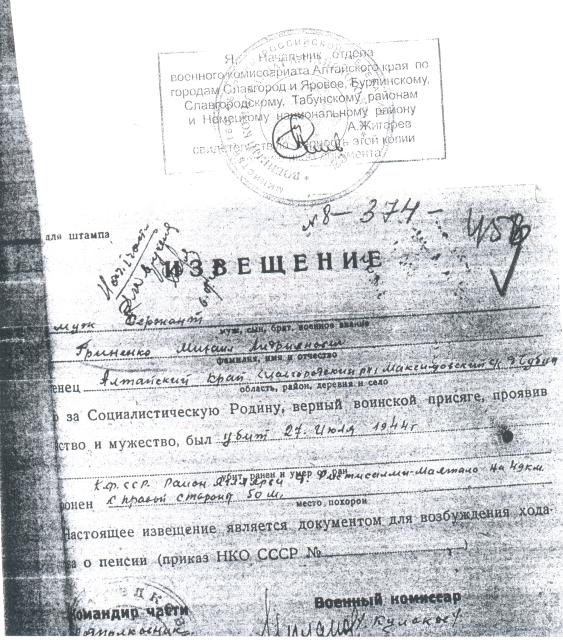 Я, Начальник отдела
военного комиссариата Алтайского края по
городам Славгород и Яровое, Бурлинскому,
Славгородскому, Табунскому районам
и Немецкому национальному району
А.Жигарев
этой копии
№ 8-374-
45в
для штампа
ИЗВЕЩЕНИЕ
муж Сержант
муж, сын, брат, военное звание
Гриненко Михаил Андриянович
фамилия, имя и отчество
енец Алтайский край
область, район, деревня и село
за Социалистическую Родину, верный воинской присяге, проявив
ство и мужество, был убит 27 Июля 1944г
К.Ф.ССР. Район на 49 км
ронен с правой стороны 50 м.
место похорон
Настоящее извещение является документом для возбуждения хода-
а о пенсии (приказ НКО СССР № )
Командир части
Военный комиссар